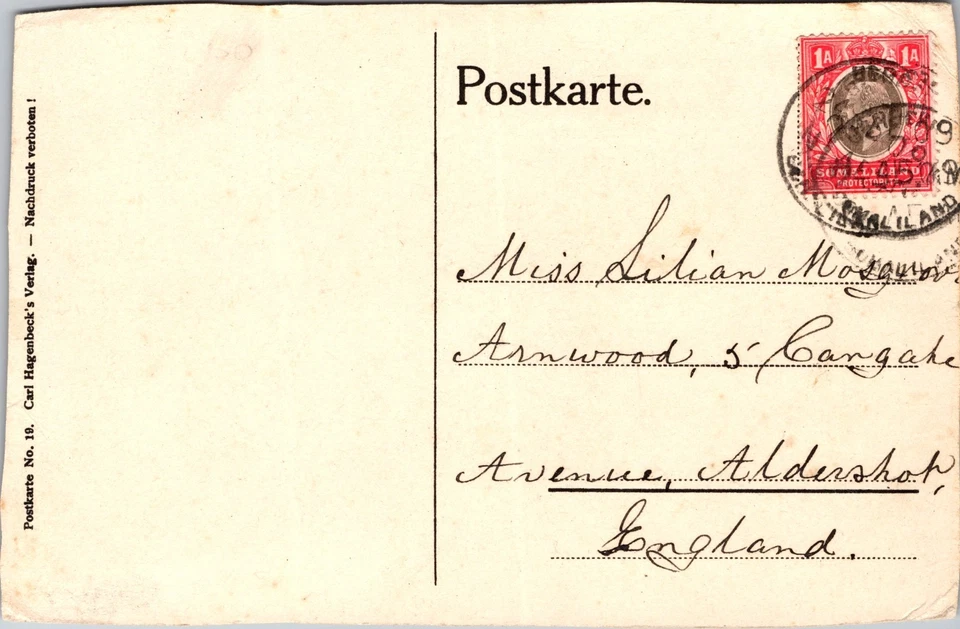 Postkarte No. 19. Carl Hagenbeck's Verlag. — Nachdruck verboten!
Postkarte.
1A 1A
SOMALILAND
PROTECTORATE
Miss Lilian
Arnwood, 5
Avenue, Aldershot,
England.